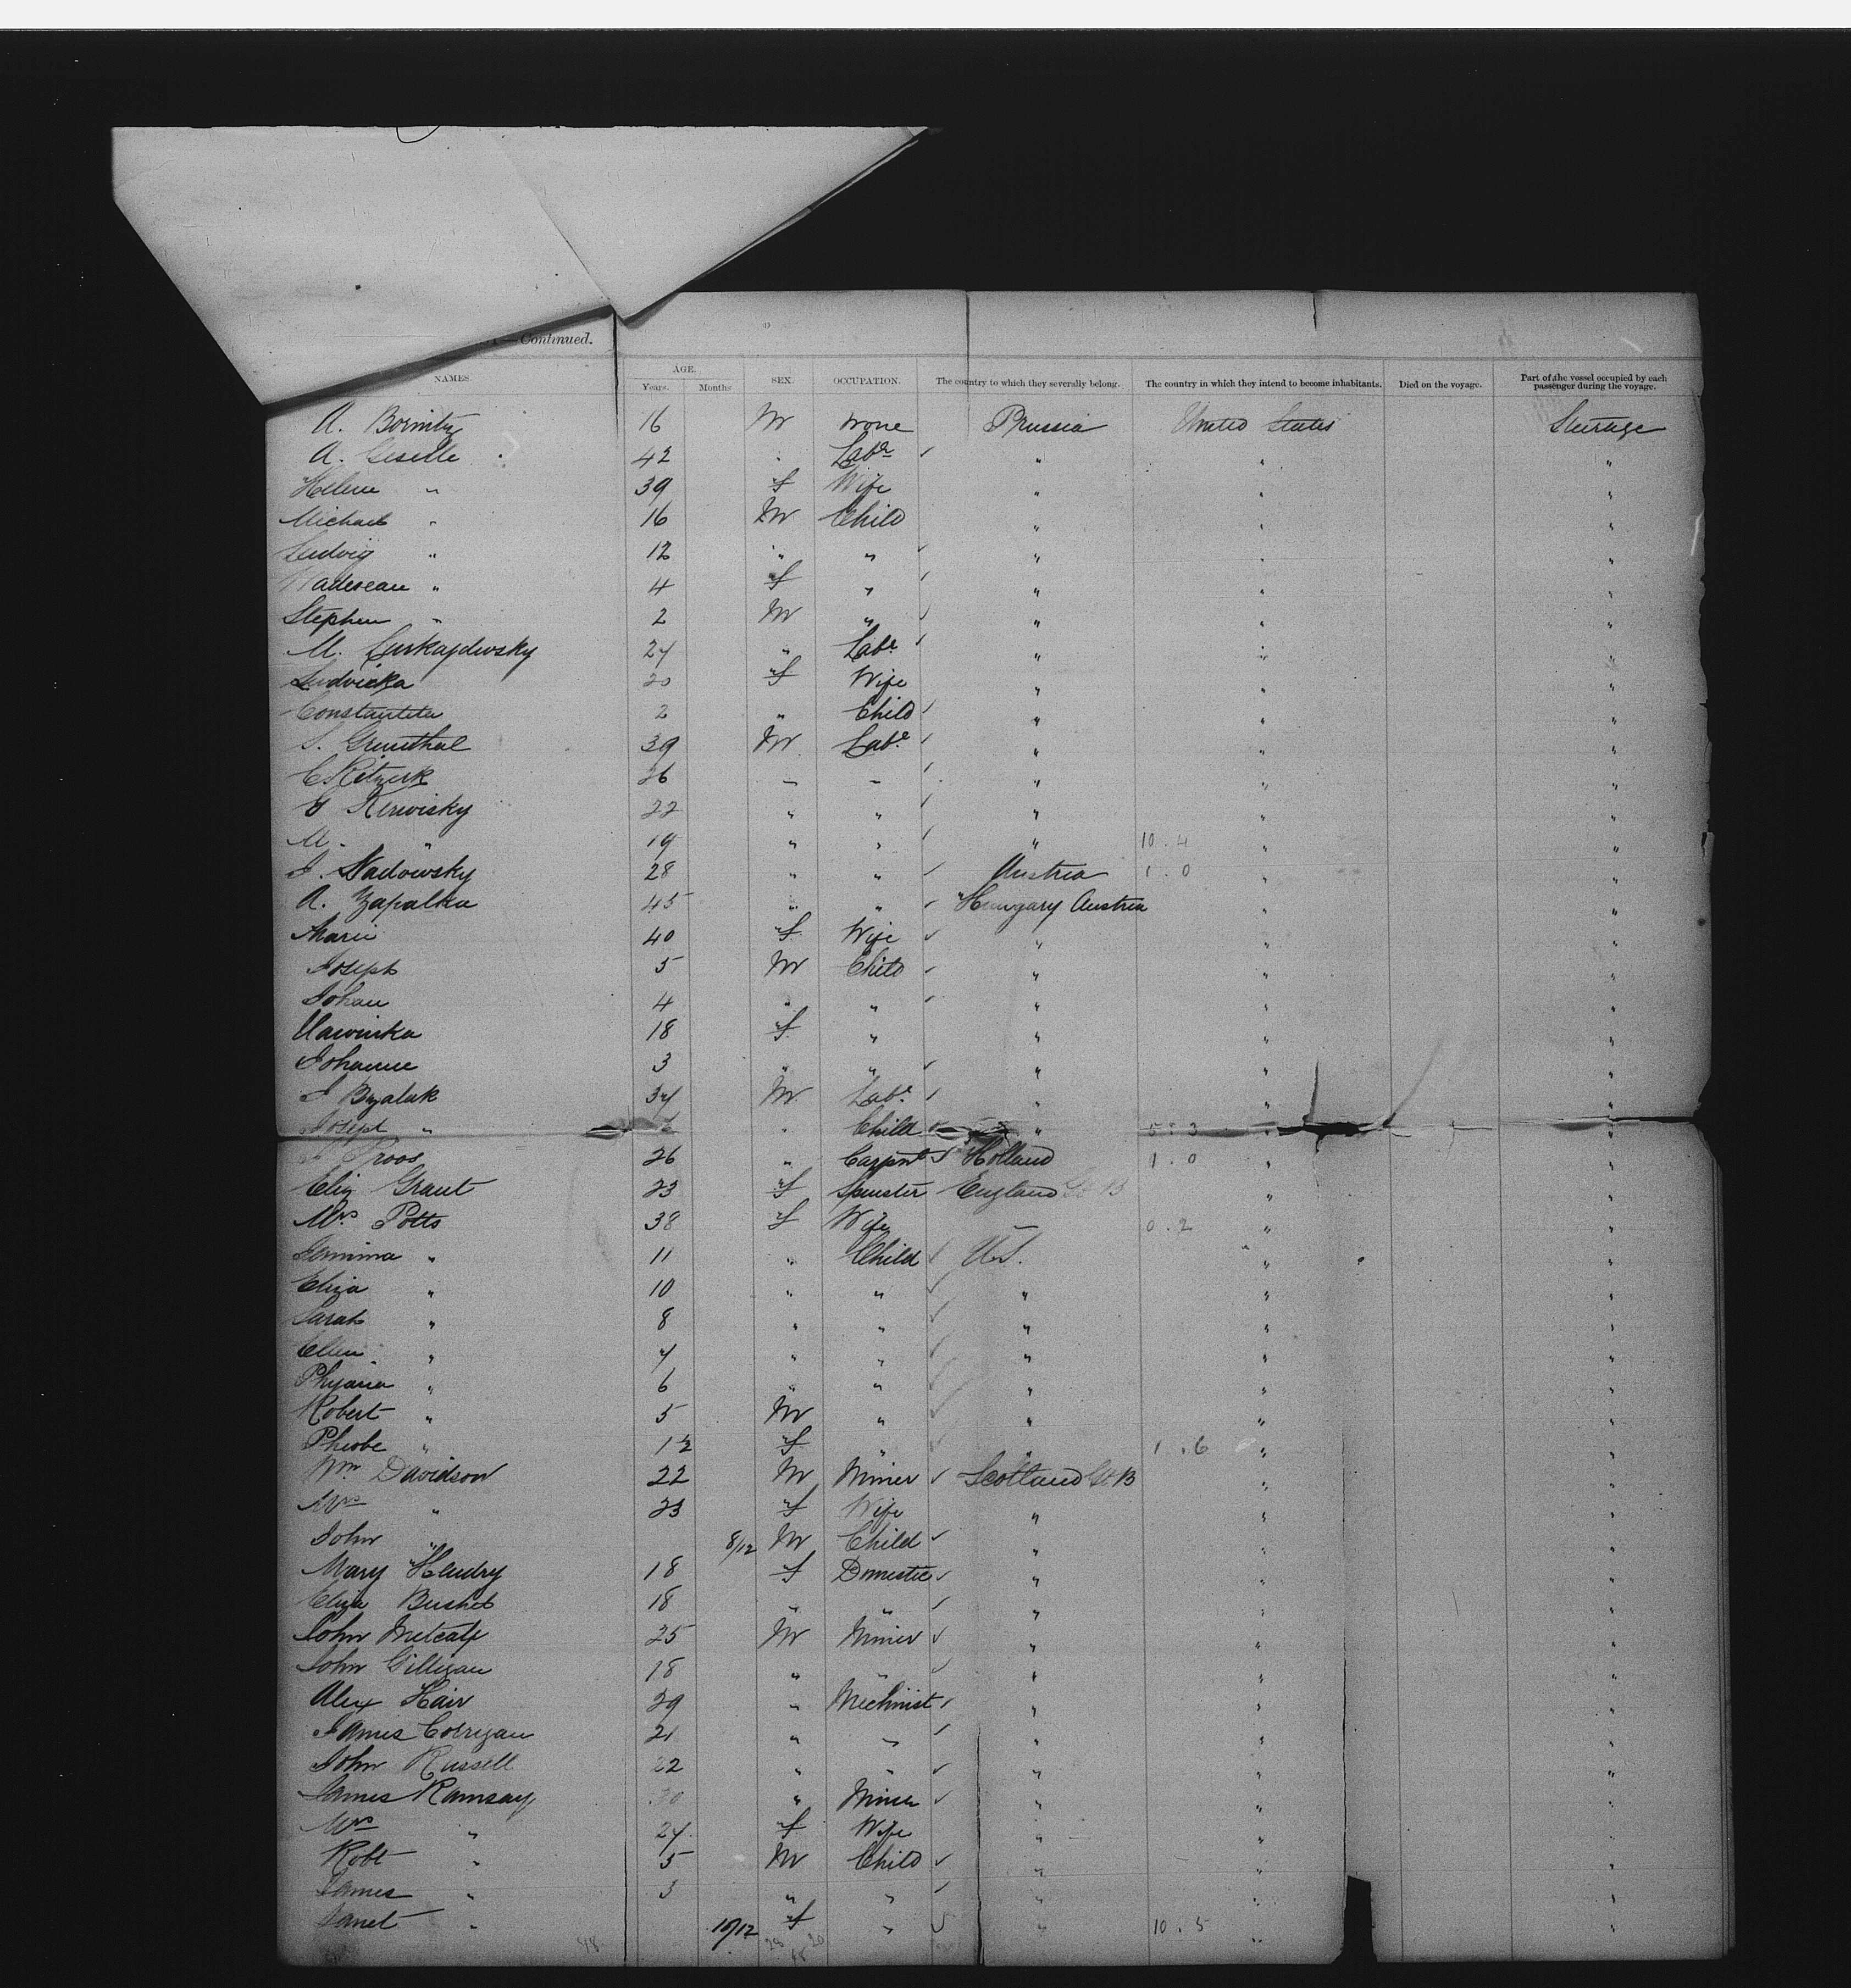 —Continued.
NAMES. AGE. SEX. OCCUPATION. The country to which they severally belong. The country in which they intend to become inhabitants. Died on the voyage. Part of the vessel occupied by each passenger during the voyage.
Years. Months
A. 16 M none Prussia United States Steerage
A. Geselle 42 " Labr ✓ " " "
Helene " 39 f Wife " " "
Michael " 16 M Child " " "
Ludwig " 12 " " ✓ " " "
" 4 f " ✓ " " "
Stephen " 2 M " ✓ " " "
M. 27 " Labr ✓ " " "
Ludvicka 20 f Wife " " "
2 " Child ✓ " " "
S. Grunthal 39 M Labr ✓ " " "
C 26 " " ✓ " " "
22 " " ✓ " " "
M. " 19 " " ✓ " 10.4 " "
J. Nadowsky 28 " " ✓ Austria 1.0 " "
A. Zapalka 45 " " ✓ Hungary Austria " "
Marie 40 f Wife ✓ " " "
Joseph 5 M Child ✓ " " "
Johan 4 " " ✓ " " "
18 f " " " "
Johanne 3 " " ✓ " " "
J 34 M Labr ✓ " " "
Joseph " " Child " 5.3 " "
Proos 26 " Carpntr ✓ Holland 1.0 " "
Eliz Grant 23 f Spinster England G.B " "
Mrs Potts 38 f Wife " 0.2 " "
Jemima " 11 " Child ✓ U.S. " "
Eliza " 10 " " ✓ " " "
Sarah " 8 " " ✓ " " "
Ellen " 7 " " ✓ " " "
" 6 " " ✓ " " "
Robert " 5 M " ✓ " " "
Pheobe " 1½ f " ✓ " 1.6 " "
Wm Davidson 22 M Miner ✓ Scotland G.B " "
Mrs " 23 f Wife " " "
John " 8/12 M Child ✓ " " "
Mary Hendry 18 f Domestic ✓ " " "
Eliza 18 " " ✓ " " "
John Metcalf 25 M Miner ✓ " " "
John Gilligan 18 " " ✓ " " "
Alex Hair 29 " Mechnist ✓ " " "
James Corrigan 21 " " ✓ " " "
John Russell 22 " " ✓ " " "
James Ramsay 30 " Miner ✓ " " "
Mrs " 27 f Wife " " "
Robt " 5 M Child ✓ " " "
James " 3 " " ✓ " " "
Janet " 10/12 f " ✓ " 10.5 " "
48 28 20
48